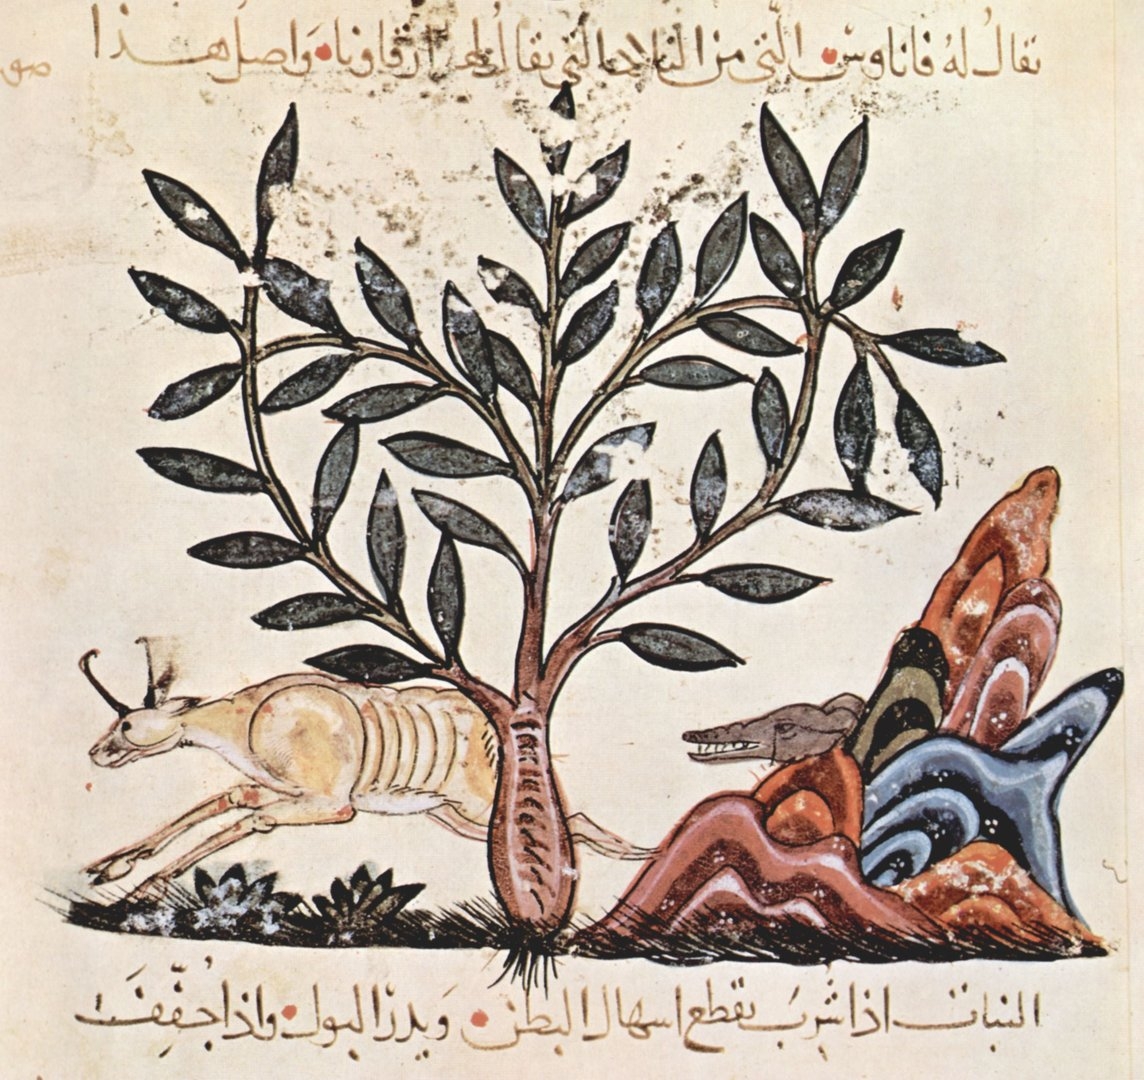 يقال له فاناوس التي من البلاد التي يقال لها ارقاونا واصل هذا
النبات اذا شرب يقطع اسهال البطن ويدر البول واذا جففت